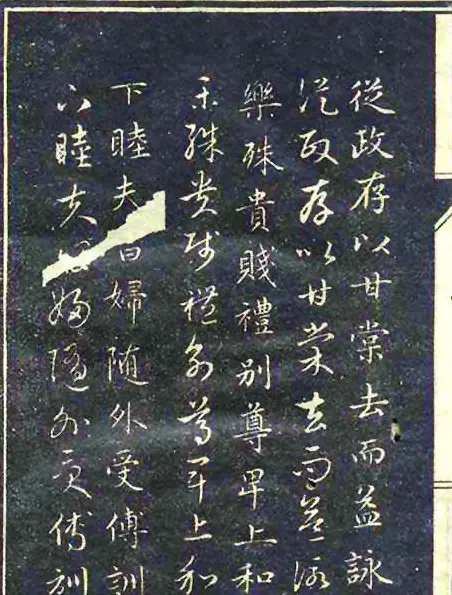 從政存以甘棠去而益詠
從政存以甘棠去而益詠
樂殊貴賤禮別尊卑上和
樂殊貴賤禮別尊卑上和
下睦夫婦随外受傅訓
下睦夫婦随外受傅訓